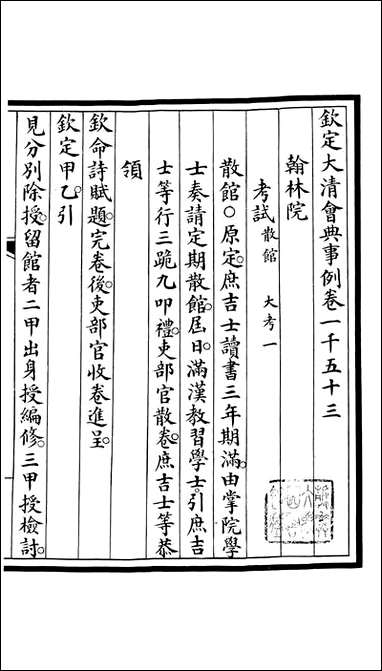 欽定大清會典事例卷一千五十三
翰林院
考試散館 大考一
散館○原定庶吉士讀書三年期滿。由掌院學
士奏請定期散館。屆日。滿漢教習學士。引庶吉
士等行三跪九叩禮。吏部官散卷。庶吉士等恭
領
欽命詩賦題。完卷後。吏部官收卷進呈。
欽定甲乙。引
見分別除授。留館者二甲出身授編修。三甲授檢討。